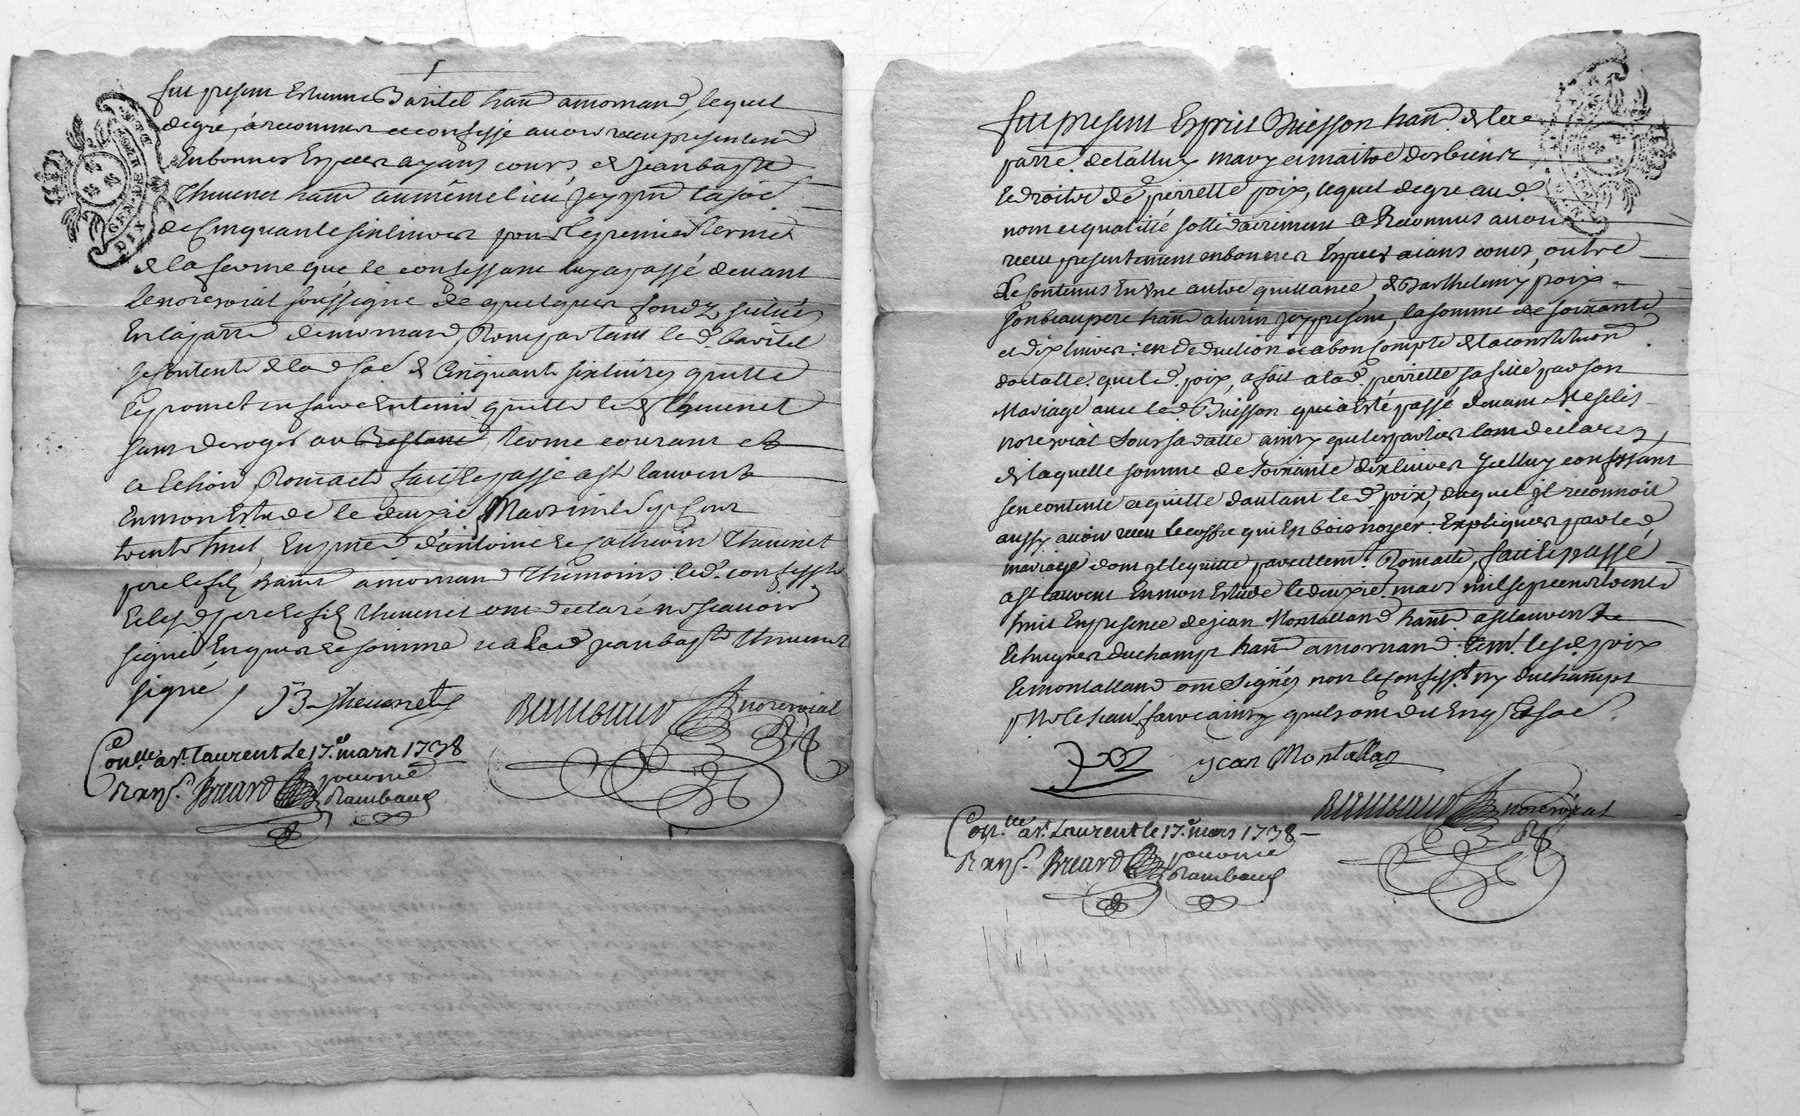 fut present Estienne Baritel hant a mornand, lequel
de gré, a reconnu et confessé avoir receu presentemt
En bonnes Especes ayans cours, de Jean bapte
Thevenet hant au même lieu jcy pnt la soe
de Cinquante six livres pour le premier terme
de la ferme que le confessant luy a passé devant
le nore roial soussigné de quelques fondz, situés
En la parre de mornand, Dont partant led baritel
se contente de lad soe de Cinquante six livres quitte
Et promet en faire Et tenir quitte led Thevenet
sans deroger au Restant, terme courant et
a Echoir Dont acte fait Et passé a st laurent
En mon Estude le deuxie Mars mil sept cent
trente huit, En pnce d'antoine et Catherin Thevenet
pere et fils hants a mornand Themoins. led. confesst
Et lesd pere et fils Thevenet ont declaré ne scavoir
signé Enquis et sommé et a Led Jean bapte Thevenet
signé / JB Thevenet
Rambaud nore roial
Conlle a st Laurent Le 17.e mars 1738
Rx Bruard pour moe
Rambaud
fut present Esprit Buisson hant de la
parre de talluy mary et maitre des biens
et droits de pierrette poix, lequel de gré aud
nom et qualité sollidairement a Reconnu avoir
receu presentement en bonnes Especes aians cours, outre
Le contenu En Une autre quittance, de Barthelemy poix
son beaupere hant a lurin jcy present, la somme de soixante
et dix livres: en deduction et a bon compte de la constitution
dotalle. que led. poix, a fait a lad. pierrette sa fille par son
Mariage avec led Buisson qui a Esté passé devant Me
nore roial sous sa datte ainsy que les parties l'ont declaré,
de laquelle somme de soixante dix livres jcelluy confessant
se contente et quitte d'autant led. poix, duquel jl reconnoit
aussy avoir receu le coffre qui Est bois noyer Expliqué par led
mariage dont jl le quitte pareillemt. Dont acte, fait et passé
a st laurent En mon Estude le deuxie. mars mil sept cent trente
huit En presence de jean Montalland hant a st laurent
et hugues duchamp hant a mornand. tem. lesd. poix
et montalland ont signés non le confesst. ny duchampt
p. ne le scavoir faire ainsy quils ont dit Enquis Et soe.
jean Montallan
Rambaud nore roial
Conlle a st. Laurent le 17.e mars 1738
Rx Bruard pour moe
Rambaud